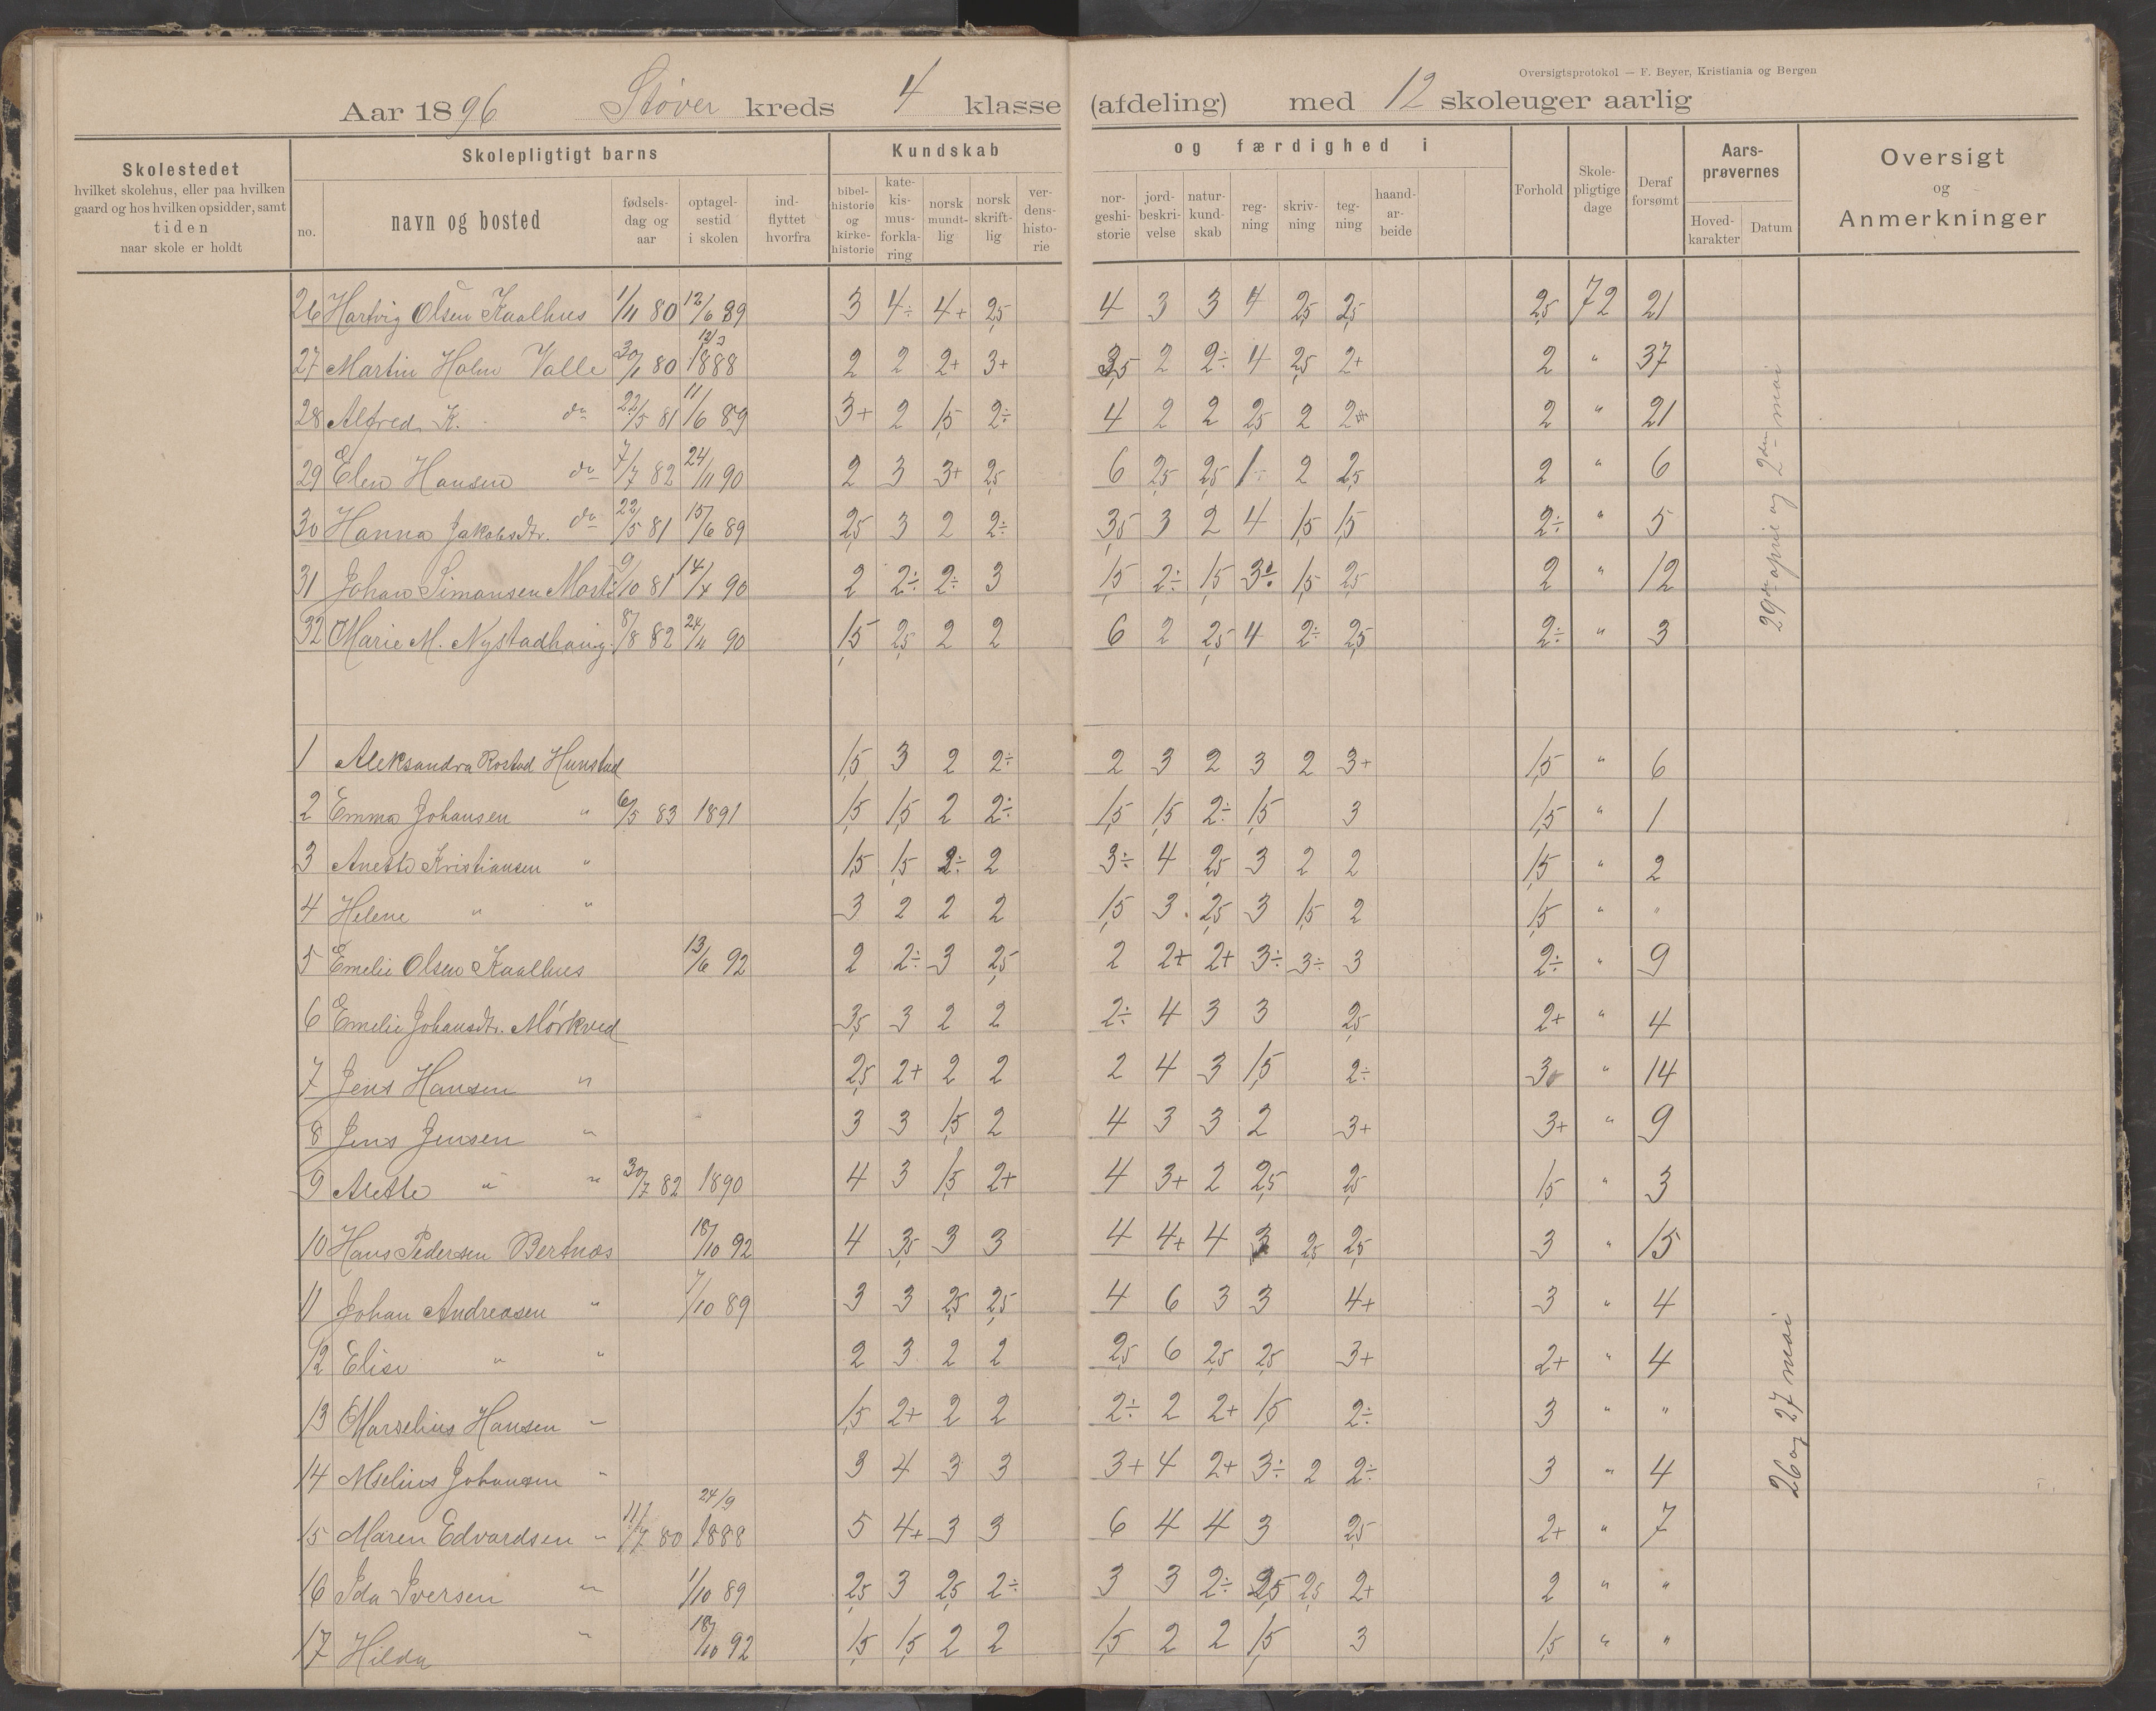 Oversigtsprotokol — F. Beyer, Kristiania og Bergen
Aar 1896 Støver kreds 4 klasse (afdeling) med 12 skoleuger aarlig
Skolestedet
hvilket skolehus, eller paa hvilken
gaard og hos hvilken opsidder, samt
tiden
naar skole er holdt
Skolepligtigt barns
no.
navn og bosted
fødsels-
dag og
aar
optagel-
sestid
i skolen
ind-
flyttet
hvorfra
Kundskab og færdighed i
bibel-
historie
og
kirke-
historie
kate-
kis-
mus-
forkla-
ring
norsk
mundt-
lig
norsk
skrift-
lig
ver-
dens-
histo-
rie
nor-
geshi-
storie
jord-
beskri-
velse
natur-
kund-
skab
reg-
ning
skriv-
ning
teg-
ning
haand-
ar-
beide
Forhold
Skole-
pligtige
dage
Deraf
forsømt
Aars-
prøvernes
Hoved-
karakter
Datum
Oversigt
og
Anmerkninger
26 Hartvig Olsen Kaalhus 1/11 80 12/6 89 3 4÷ 4+ 2,5 4 3 3 4 2,5 2,5 2,5 72 21
27 Martin Holm Valle 30/1 80 12/3 1888 2 2 2+ 3+ 3,5 2 2÷ 4 2,5 2+ 2 " 37
28 Alfred K. do 22/5 81 11/6 89 3+ 2 1,5 2÷ 4 2 2 2,5 2 2+ 2 " 21
29 Elen Hansen do 7/7 82 24/11 90 2 3 3+ 2,5 6 2,5 2,5 1÷ 2 2,5 2 " 6
30 Hanna Jakobsdtr. do 22/5 81 15/6 89 2,5 3 2 2÷ 3,5 3 2 4 1,5 1,5 2÷ " 5
31 Johan Simonsen 9/10 81 14/4 90 2 2÷ 2÷ 3 1,5 2÷ 1,5 3÷ 1,5 2,5 2 " 12
32 Marie M. Nystadhaug 8/8 82 24/11 90 1,5 2,5 2 2 6 2 2,5 4 2÷ 2,5 2÷ " 3
29de april og 2den mai
1 Aleksandra Rostad Hunstad 1,5 3 2 2÷ 2 3 2 3 2 3+ 1,5 " 6
2 Emma Johansen " 6/5 83 1891 1,5 1,5 2 2÷ 1,5 1,5 2÷ 1,5 3 1,5 " 1
3 Anette Kristiansen " 1,5 1,5 2÷ 2 3÷ 4 2,5 3 2 2 1,5 " 2
4 Helene " " 3 2 2 2 1,5 3 2,5 3 1,5 2 1,5 " "
5 Emelie Olsen Kaalhus 13/6 92 2 2÷ 3 2,5 2 2+ 2+ 3÷ 3÷ 3 2÷ " 9
6 Emelie Johansdtr. Mörkved 3,5 3 2 2 2÷ 4 3 3 2,5 2+ " 4
7 Jens Hansen " 2,5 2+ 2 2 2 4 3 1,5 2÷ 3 " 14
8 Jens Jensen " 3 3 1,5 2 4 3 3 2 3+ 3+ " 9
9 Alette " " 30/7 82 1890 4 3 1,5 2+ 4 3+ 2 2,5 2,5 1,5 " 3
10 Hans Pedersen Bertnæs 18/10 92 4 3,5 3 3 4 4+ 4 3 2,5 2,5 3 " 15
11 Johan Andreasen " 7/10 89 3 3 2,5 2,5 4 6 3 3 4+ 3 " 4
12 Elise " " 2 3 2 2 2,5 6 2,5 2,5 3+ 2+ " 4
13 Marselius Hansen " 1,5 2+ 2 2 2÷ 2 2+ 1,5 2÷ 3 " "
14 Meselius Johansen " 3 4 3 3 3+ 4 2+ 3÷ 2 2÷ 3 " 4
15 Maren Edvardsen " 11/7 80 24/9 1888 5 4+ 3 3 6 4 4 3 2,5 2+ " 7
16 Ida Iversen " 1/10 89 2,5 3 2,5 2÷ 3 3 2÷ 2,5 2,5 2+ 2 " "
17 Hilda " 18/10 92 1,5 1,5 2 2 1,5 2 2 1,5 3 1,5 " "
26 og 27 mai